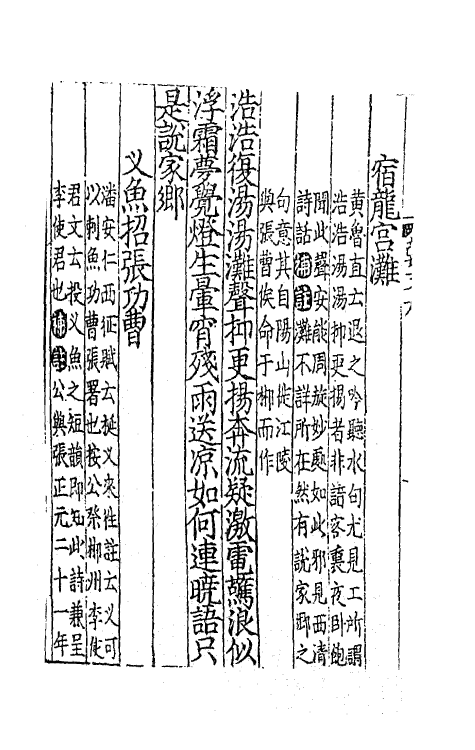 宿龍宮灘
黃魯直云退之吟聽水句尤見工所謂
浩浩湯湯抑更揚者非諳客裏夜卧飽
聞此聲安能周旋妙處如此邪見西清
詩話補註灘不詳所在然有說家鄉之
句意其自陽山徙江陵
與張曹俟命于郴而作
浩浩復湯湯灘聲抑更揚奔流疑激電驚浪似
浮霜夢覺燈生暈宵殘雨送凉如何連曉語只
是說家鄉
乂魚招張功曹
潘安仁西征賦云挺乂來往註云乂可
以刺魚功曹張署也按公祭郴州李使
君文云投乂魚之短韻即知此詩兼呈
李使君也補註公與張正元二十一年